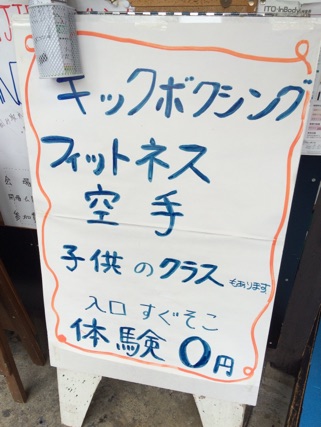 ITO-InBody
キックボクシング
フィットネス
空手
子供のクラス もあります
入口 すぐそこ
体験 0円